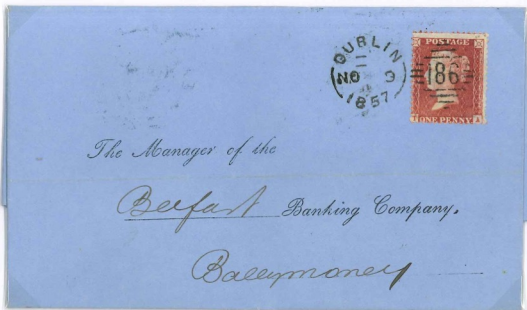 DUBLIN
NO 9
1857
POSTAGE
186
ONE PENNY
The Manager of the
Belfast Banking Company,
Ballymoney